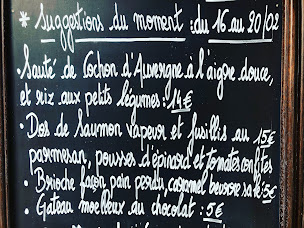 * Suggestions du moment : du 16 au 20/02
Sauté de Cochon d'Auvergne à l'aigre douce,
et riz aux petits légumes : 14€
• Dos de Saumon vapeur et fusillis au 15€
parmesan, pousses d'épinard et tomates confites
• Brioche façon pain perdu, caramel beurre salé : 5€
• Gateau moelleux au chocolat : 5€